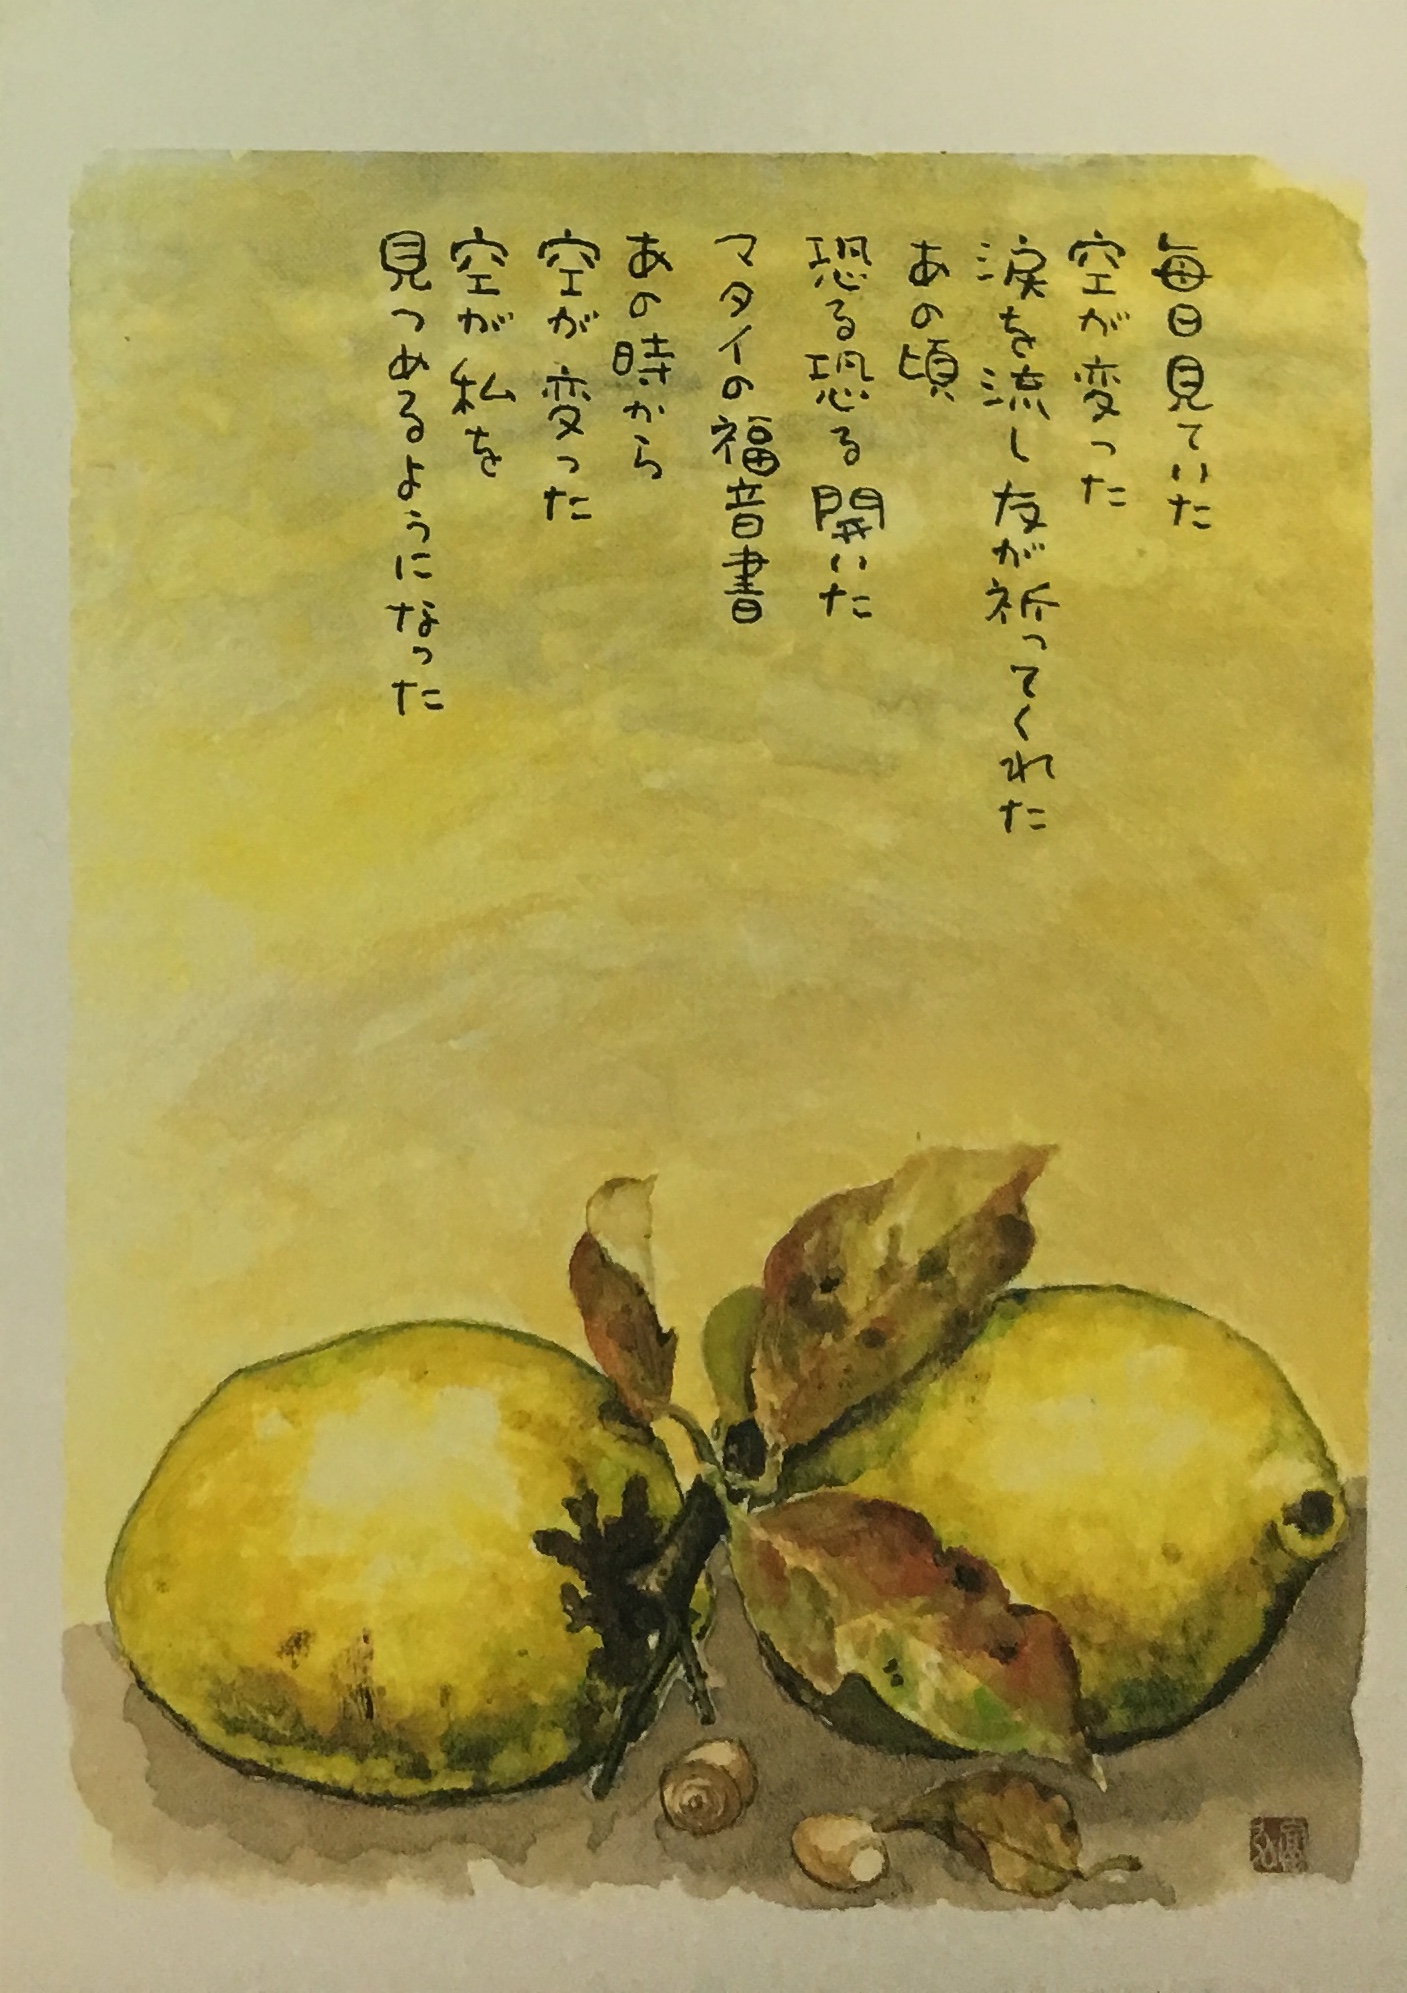 毎日見ていた
空が変った
涙を流し友が祈ってくれた
あの頃
恐る恐る開いた
マタイの福音書
あの時から
空が変った
空が私を
見つめるようになった